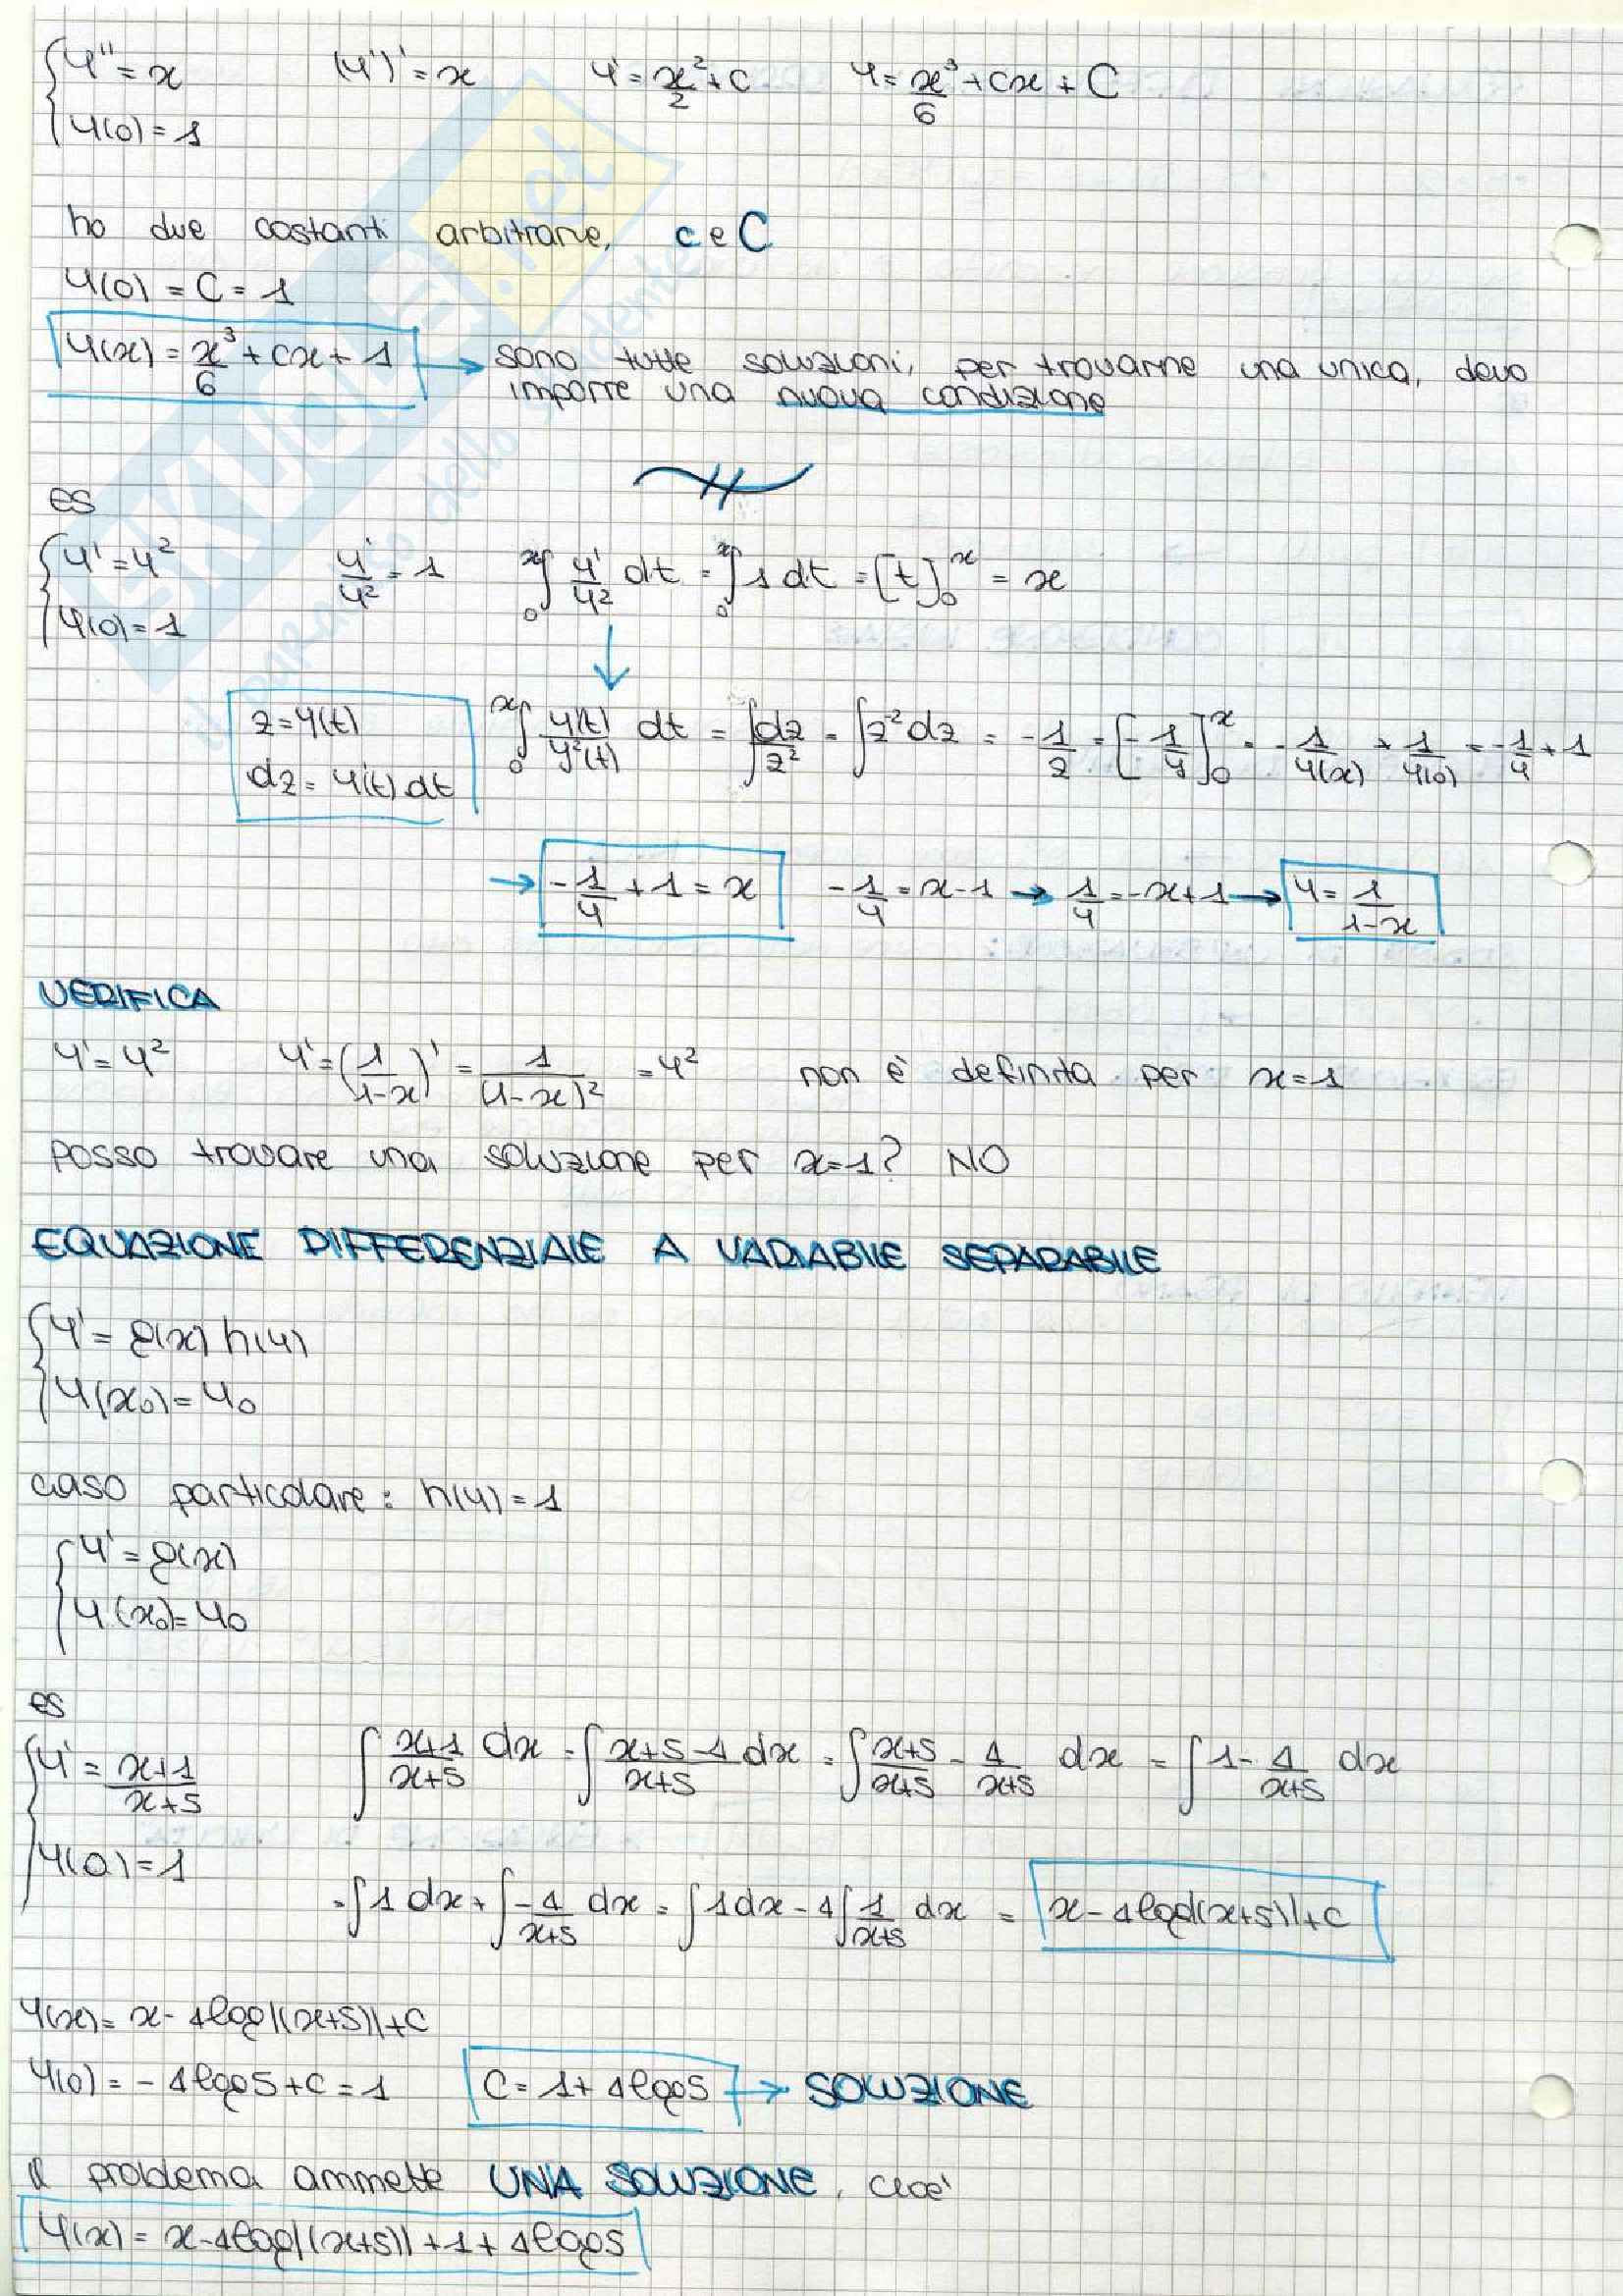 { y'' = x    (y')' = x    y' = x²/2 + c    y = x³/6 + cx + C
{ y(0) = 1
ho due costanti arbitrarie, c e C
y(0) = C = 1
y(x) = x³/6 + cx + 1 → sono tutte soluzioni, per trovarne una unica, devo
imporre una nuova condizione
es
{ y' = y²    y'/y² = 1    ∫₀ˣ y'/y² dt = ∫₀ˣ 1 dt = [t]₀ˣ = x
{ y(0) = 1
z = y(t)    ∫₀ˣ y'(t)/y²(t) dt = ∫ dz/z² = ∫ z⁻² dz = -1/z = [-1/y]₀ˣ = -1/y(x) + 1/y(0) = -1/y + 1
dz = y'(t) dt
→ -1/y + 1 = x    -1/y = x-1 → 1/y = -x+1 → y = 1/(1-x)
VERIFICA
y' = y²    y' = (1/(1-x))' = 1/(1-x)² = y²    non è definita per x=1
posso trovare una soluzione per x=1? NO
EQUAZIONE DIFFERENZIALE A VARIABILE SEPARABILE
{ y' = g(x) h(y)
{ y(x₀) = y₀
caso particolare: h(y) = 1
{ y' = g(x)
{ y(x₀) = y₀
es
{ y' = (x+1)/(x+5)    ∫ (x+1)/(x+5) dx = ∫ (x+5-4)/(x+5) dx = ∫ (x+5)/(x+5) - 4/(x+5) dx = ∫ 1 - 4/(x+5) dx
{ y(0) = 1
= ∫ 1 dx + ∫ -4/(x+5) dx = ∫ 1 dx - 4 ∫ 1/(x+5) dx = x - 4log|(x+5)| + c
y(x) = x - 4log|(x+5)| + c
y(0) = -4log5 + c = 1    c = 1 + 4log5 → SOLUZIONE
il problema ammette UNA SOLUZIONE, cioè
y(x) = x - 4log|(x+5)| + 1 + 4log5